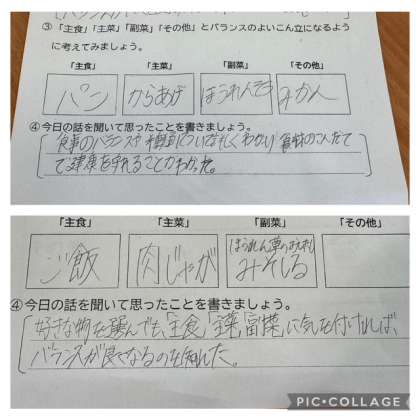 ③「主食」「主菜」「副菜」「その他」とバランスのよいこん立になるよう
に考えてみましょう。
「主食」 「主菜」 「副菜」 「その他」
パン からあげ ほうれんそう みかん
④今日の話を聞いて思ったことを書きましょう。
食事のバランスや種類についてくわしくわかり
て健康を守れることがわかった。
「主食」 「主菜」 「副菜」 「その他」
ご飯 肉じゃが ほうれん草のおひたし
みそしる
④今日の話を聞いて思ったことを書きましょう。
好きな物を選んでも、「主食」「主菜」「副菜」に気を付ければ、
バランスが良くなるのを知れた。
PIC•COLLAGE